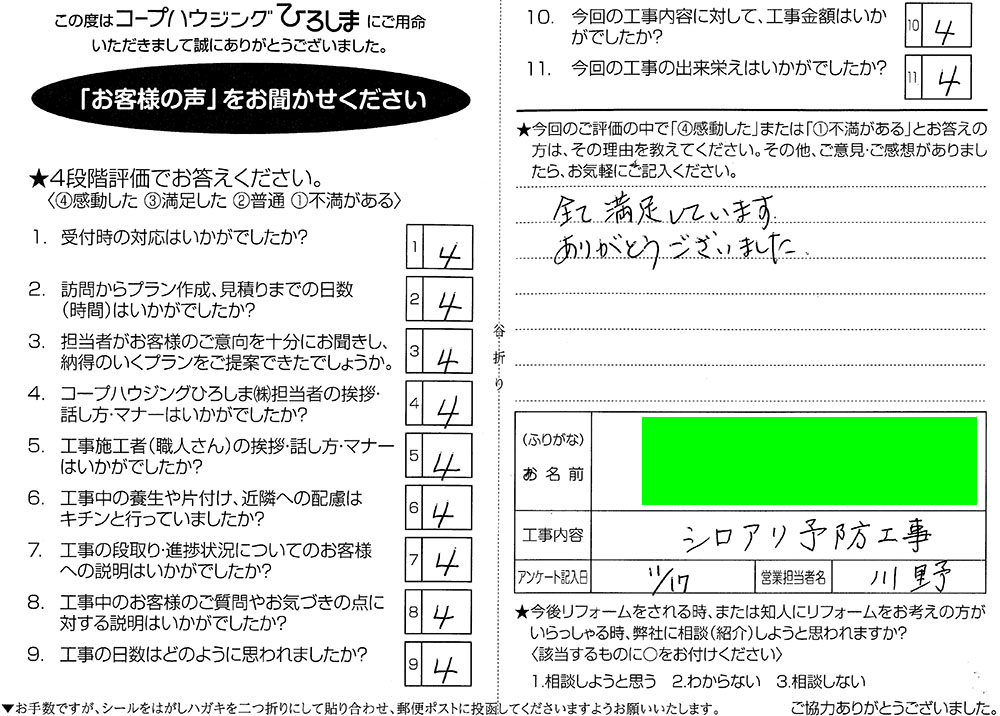 この度はコープハウジングひろしまにご用命
いただきまして誠にありがとうございました。
「お客様の声」をお聞かせください
★4段階評価でお答えください。
〈④感動した ③満足した ②普通 ①不満がある〉
1. 受付時の対応はいかがでしたか?
1 4
2. 訪問からプラン作成、見積りまでの日数
(時間)はいかがでしたか?
2 4
3. 担当者がお客様のご意向を十分にお聞きし、
納得のいくプランをご提案できたでしょうか。
3 4
4. コープハウジングひろしま㈱担当者の挨拶・
話し方・マナーはいかがでしたか?
4 4
5. 工事施工者(職人さん)の挨拶・話し方・マナー
はいかがでしたか?
5 4
6. 工事中の養生や片付け、近隣への配慮は
キチンと行っていましたか?
6 4
7. 工事の段取り・進捗状況についてのお客様
への説明はいかがでしたか?
7 4
8. 工事中のお客様のご質問やお気づきの点に
対する説明はいかがでしたか?
8 4
9. 工事の日数はどのように思われましたか?
9 4
▼お手数ですが、シールをはがしハガキを二つ折りにして貼り合わせ、郵便ポストに投函してくださいますようお願いいたします。
谷折り
10. 今回の工事内容に対して、工事金額はいか
がでしたか?
10 4
11. 今回の工事の出来栄えはいかがでしたか?
11 4
★今回のご評価の中で「④感動した」または「①不満がある」とお答えの
方は、その理由を教えてください。その他、ご意見・ご感想がありまし
たら、お気軽にご記入ください。
全て満足しています。
ありがとうございました。
(ふりがな)
お名前
工事内容 シロアリ予防工事
アンケート記入日 11/17 営業担当者名 川野
★今後リフォームをされる時、または知人にリフォームをお考えの方が
いらっしゃる時、弊社に相談(紹介)しようと思われますか?
〈該当するものに○をお付けください〉
1.相談しようと思う 2.わからない 3.相談しない
ご協力ありがとうございました。